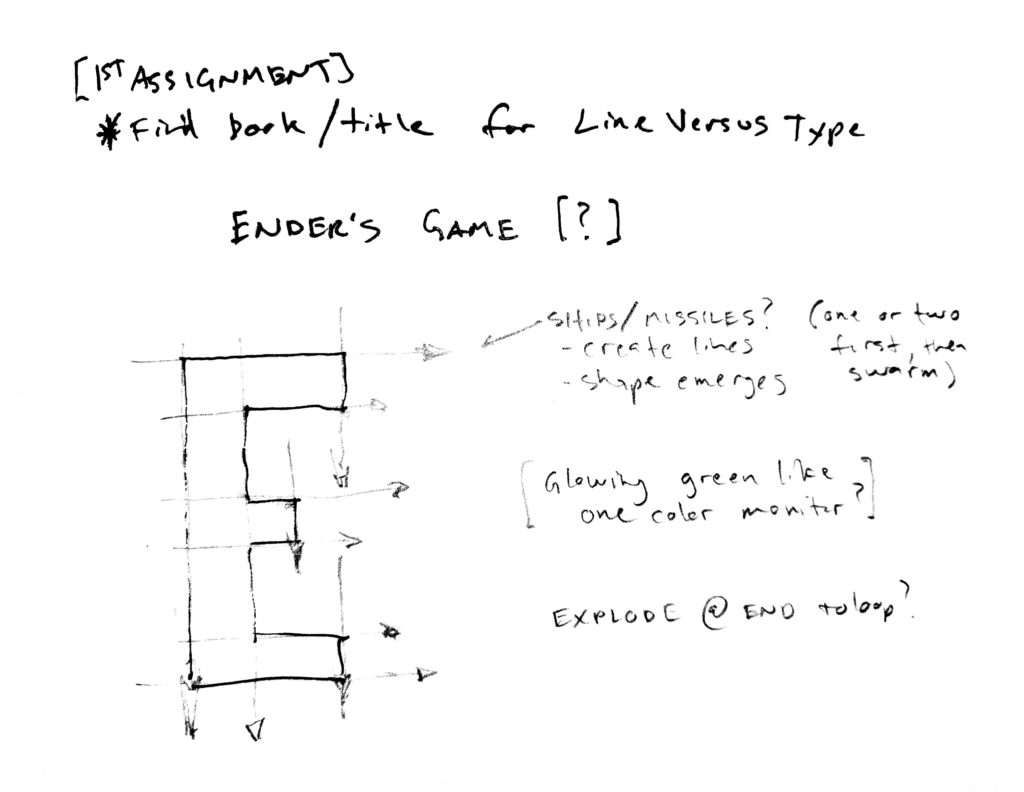 [1ST ASSIGNMENT]
* Find book/title for Line Versus Type
ENDER'S GAME [?]
SHIPS/MISSILES? (one or two
- create lines first, then
- shape emerges swarm)
[Glowing green like
one color monitor?]
EXPLODE @ END to loop?